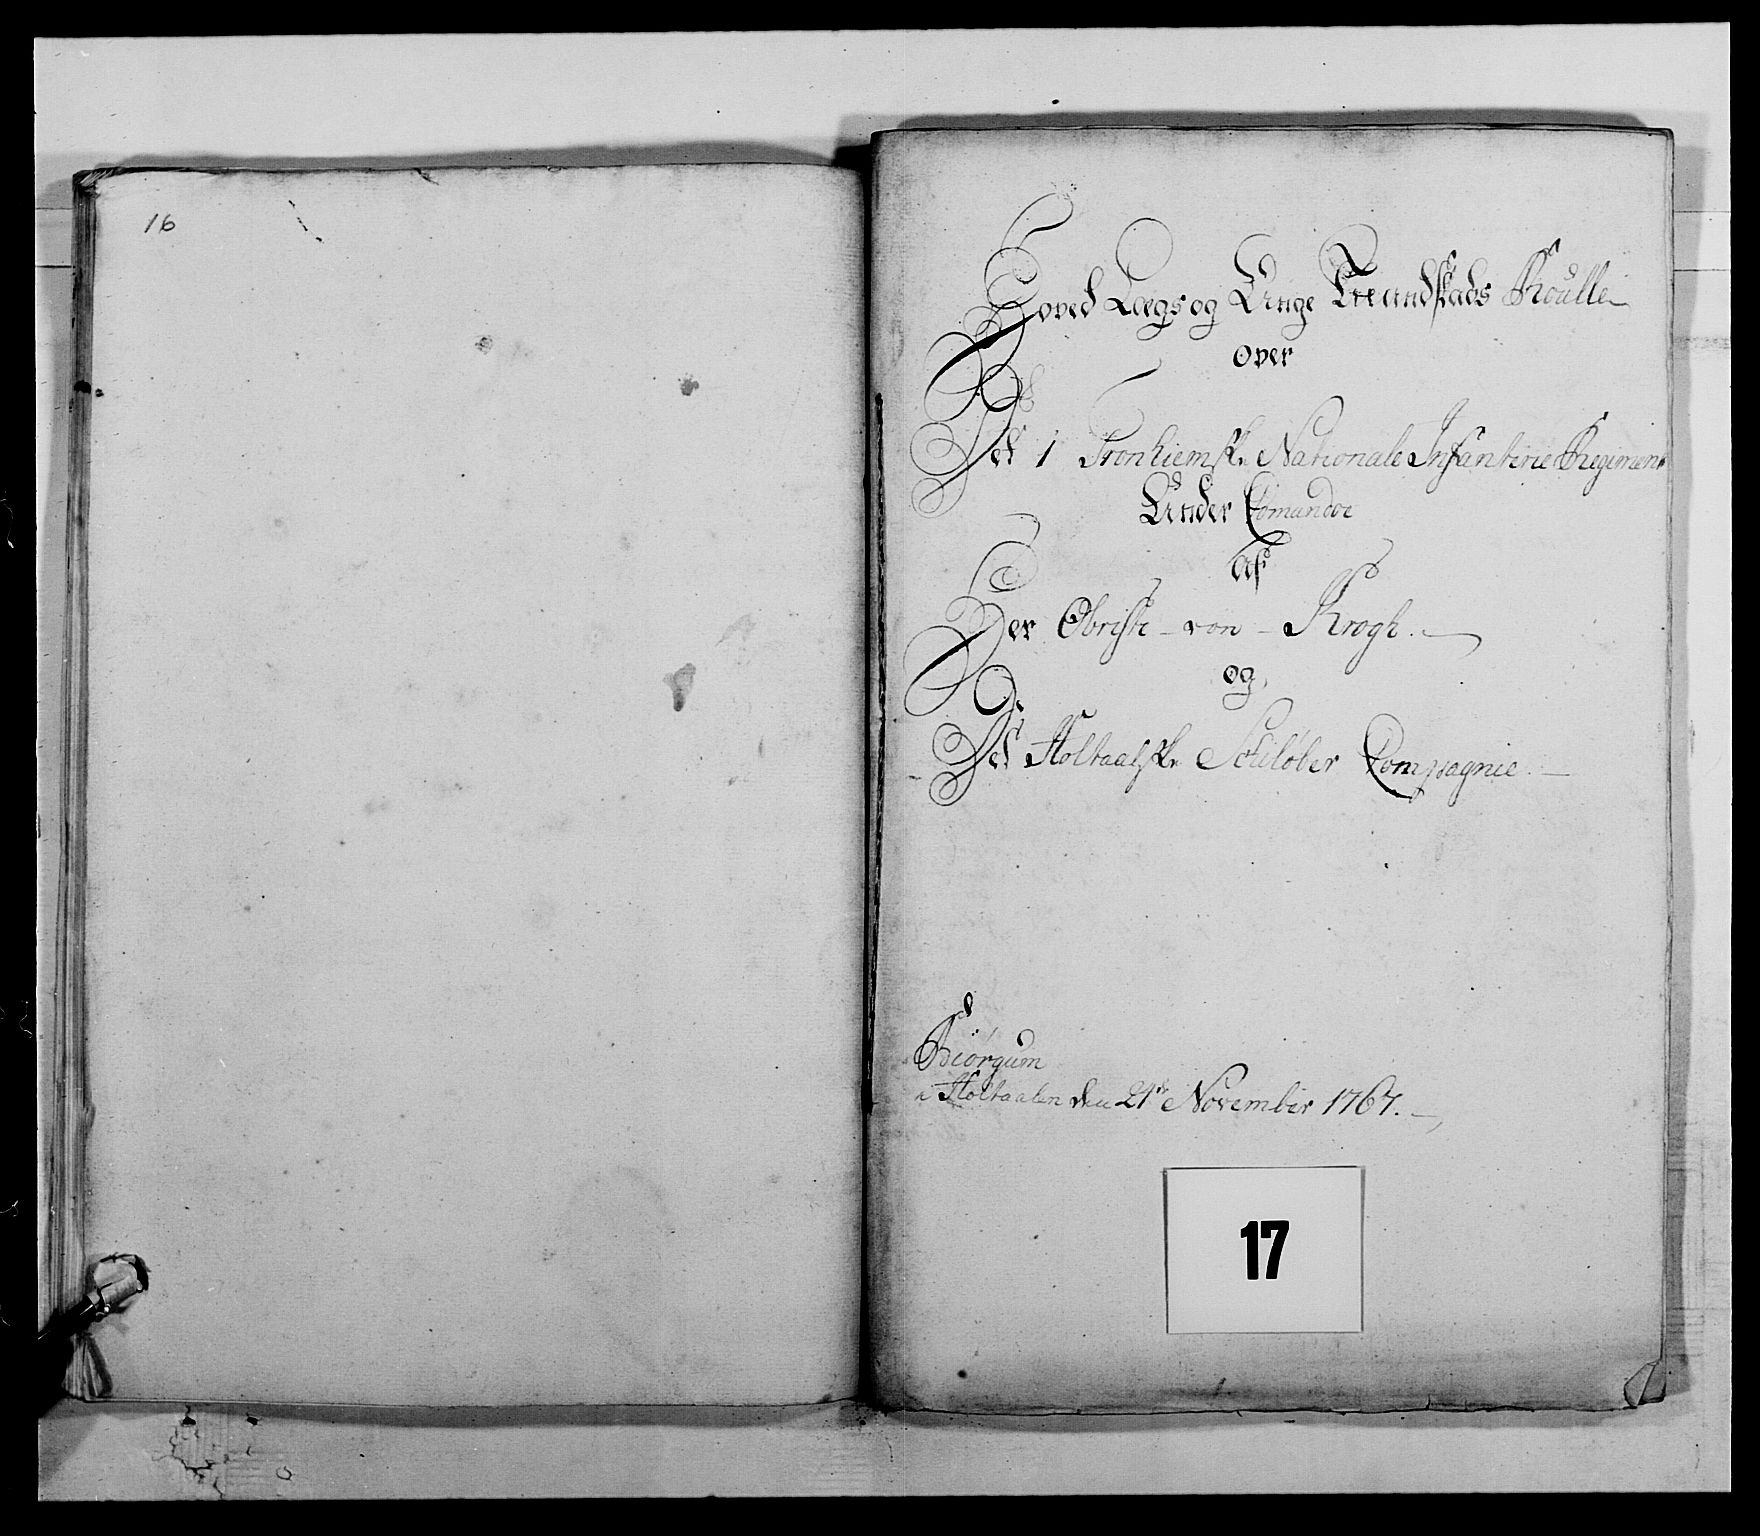 16
Hoved Lægs og Unge Mandskabs Roulle
over
Det 1 Tronhiemske Nationale Infanterie Regiment
Under Comandoe
af
Her Obriste von Krogh.
og
Det Holtaalske Schiløber Compagnie.
Biørgum
Holtaalen den 21de November 1767.
17